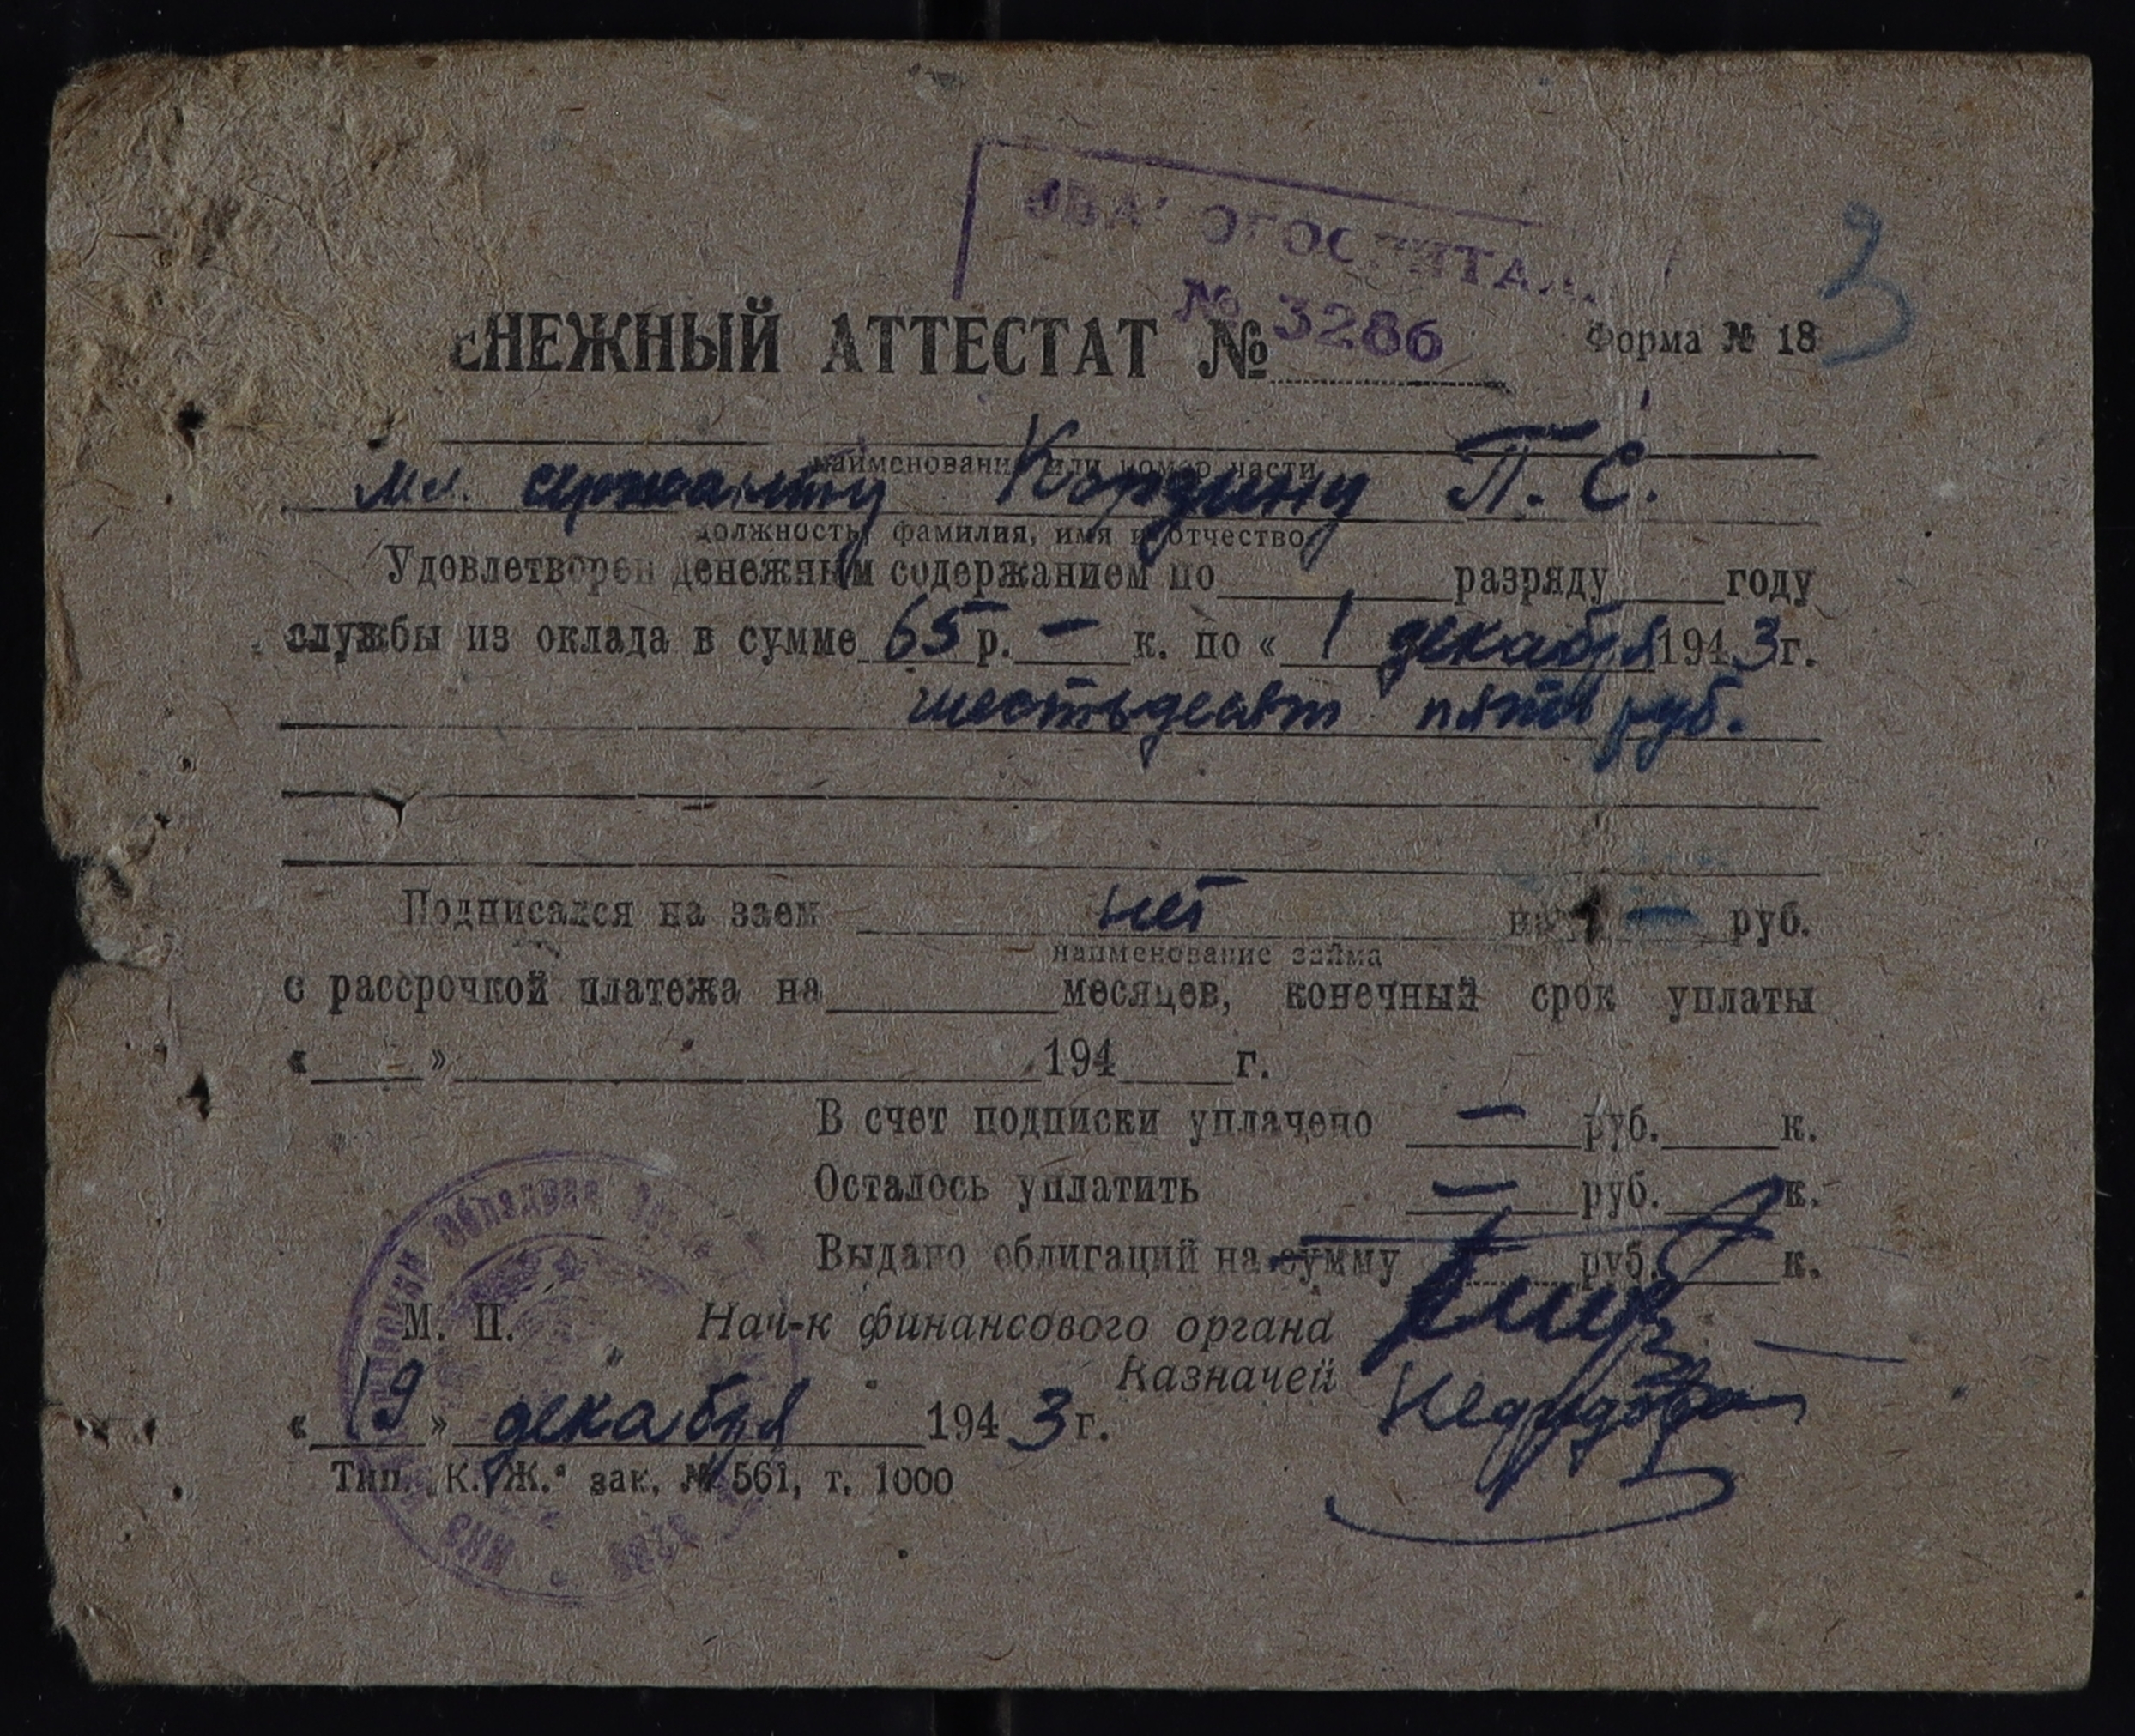 ЭВАКОГОСПИТАЛ
№ 3286
3
ЕНЕЖНЫЙ АТТЕСТАТ №
Форма № 18
наименование или номер части
мл. сержанту Кордину П. С.
должность, фамилия, имя и отчество
Удовлетворен денежным содержанием по разряду году
службы из оклада в сумме 65 р. – к. по « 1 декабря 1943г.
шестьдесят пять руб.
Подписался на заем нет на – руб.
наименование займа
с рассрочкой платежа на месяцев, конечный срок уплаты
« » 194 г.
В счет подписки уплачено – руб. к.
Осталось уплатить – руб. к.
Выдано облигаций на сумму руб. к.
М. П. Нач-к финансового органа
Казначей
« 19 » декабря 1943г.
Тип. „К. Ж.“ зак. № 561, т. 1000